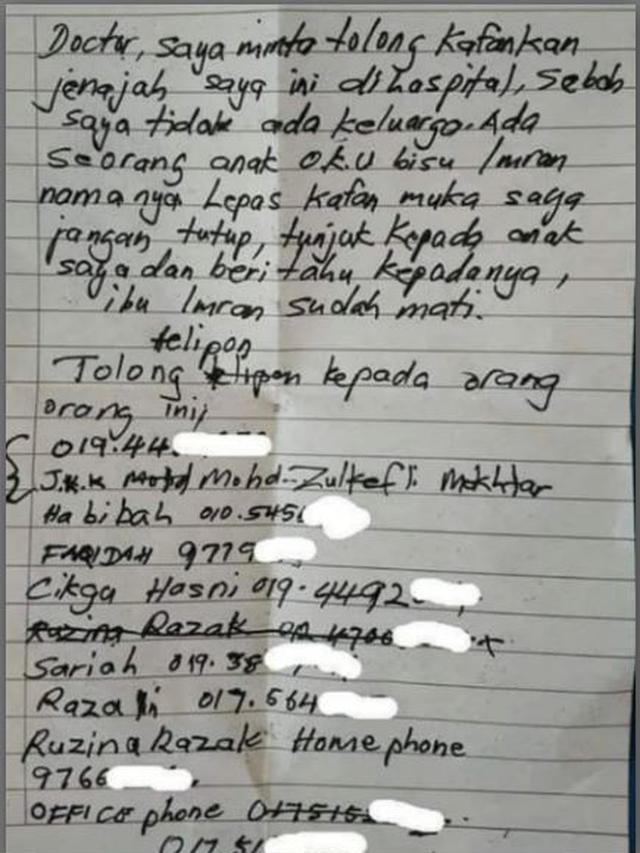 Doctor, saya minta tolong Kafankan
jenajah saya ini di hospital, Sebab
saya tidak ada keluarga. Ada
Seorang anak O.K.U bisu Imran
nama nya Lepas Kafan muka saya
jangan tutup, tunjuk Kepada anak
saya dan beri tahu kepadanya,
ibu Imran sudah mati.
telipon
Tolong kepada orang
orang ini,
019.44
J.K.K Mohd-Zulkefli Mokhtar
Habibah 010.545
FARIDAH 9779
Cikga Hasni 019.4492
Razina Razak
Sariah 019.38
Razali 017.564
Ruzina Razak Home phone
9766
OFFICE phone 0175152
017.51